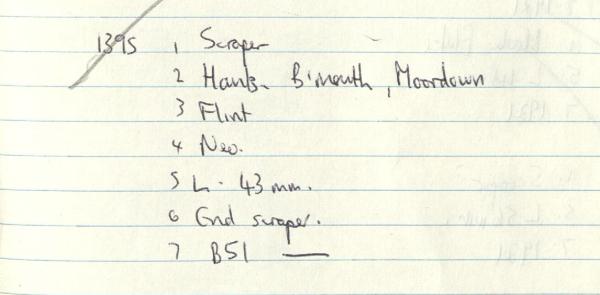 1395 1 Scraper
2 Hants. B'mouth, Moordown
3 Flint
4 Neo.
5 L. 43 mm.
6 End scraper.
7 B51 —